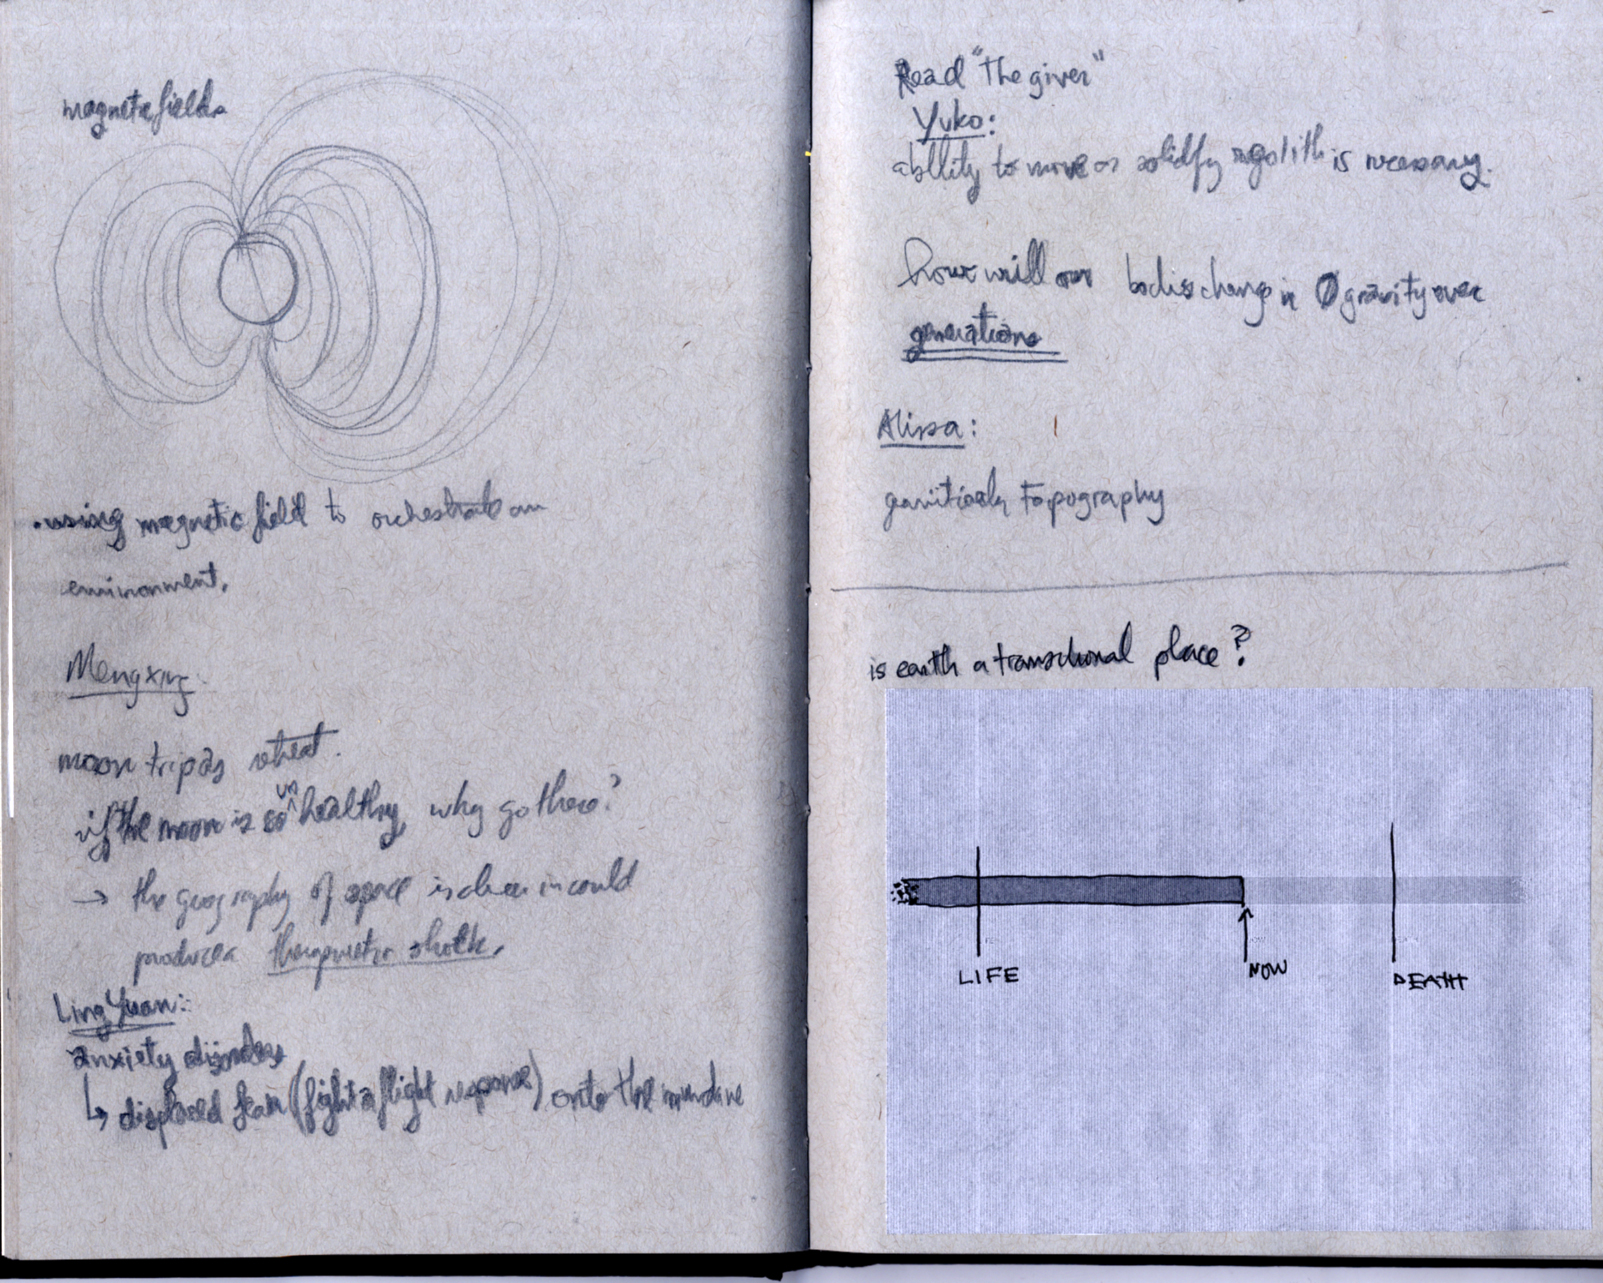 magnetic fields
. using magnetic field to orchestrate an
environment.
Mengxing
moon trip as retreat.
if the moon is so healthy, why go there?
un
→ the geography of space is in could
produces shock.
Ling Yuan:
anxiety disorder
↳ displaced fear (fight or flight response) onto the mundane
Read "The giver"
Yuko:
abllity to move or solidfy regolith is necessary.
how will our bodies change in 0 gravity over
generations
Alissa:
Topography
is earth a transitional place?
LIFE
NOW
DEATH